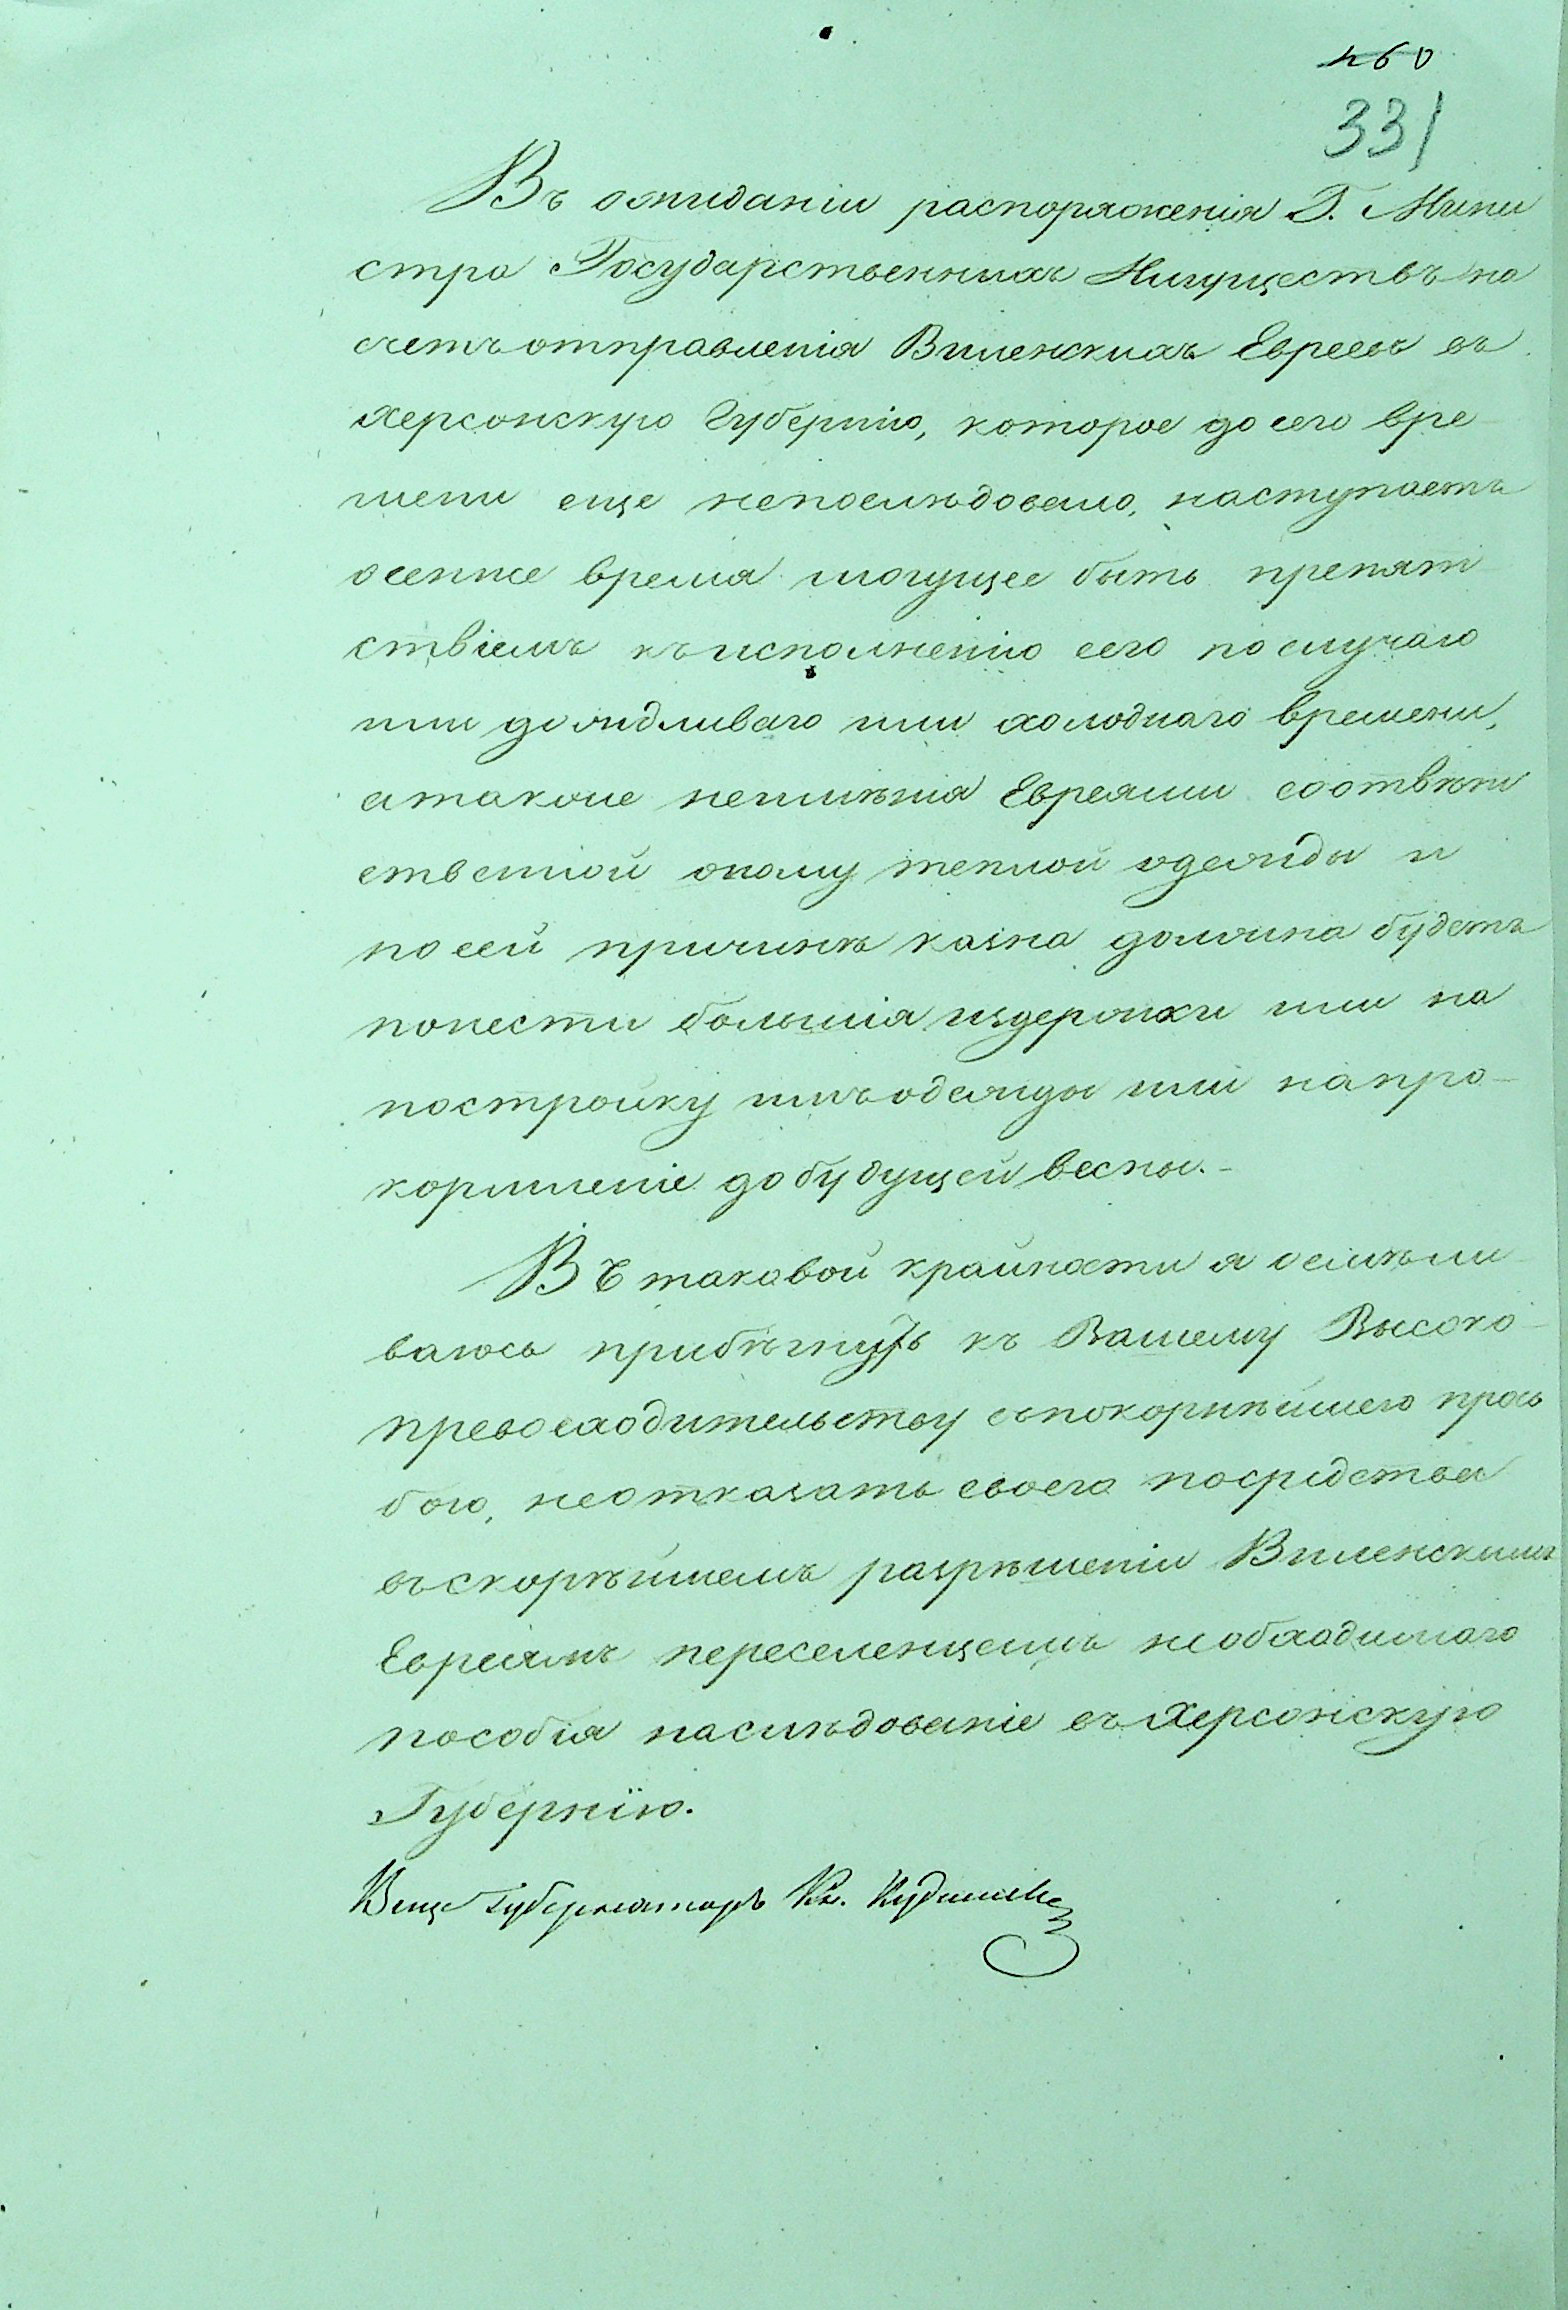 460
331
Въ ожиданіи распоряженія Г. Мини
стра Государственныхъ Имуществъ на
счетъ отправленія Виленскихъ Евреевъ въ
Херсонскую Губернію, которое до сего вре-
мени еще непослѣдовало, наступаетъ
осеннее время могущее быть препят-
ствіемъ къ исполненію сего по случаю
или дождливаго или холоднаго времени,
а также неимѣнія Евреями соотвѣт
ственной оному теплой одежды и
по сей причинѣ казна должна будетъ
понести большія издержки или на
постройку имъ одежды или на про-
кормленіе до будущей весны.-
Въ таковой крайности я осмѣли-
ваюсь прибѣгнуть къ Вашему Высоко-
превосходительству съ покорнѣйшею прось
бою, не отказать своего посредства
въ скорѣйшемъ разрѣшеніи Виленскимъ
Евреямъ переселенцамъ необходимаго
пособія на слѣдованіе въ Херсонскую
Губернію.
Вице Губернаторъ Кн.